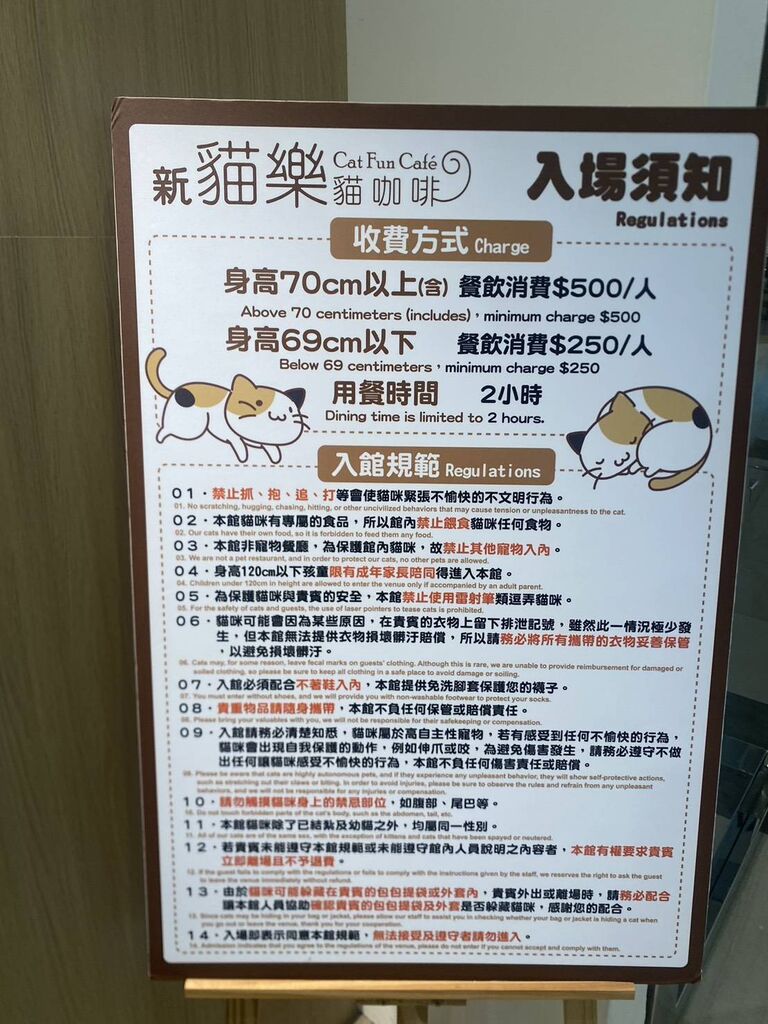 新貓樂 Cat Fun Café 貓咖啡
入場須知
Regulations
收費方式 Charge
身高70cm以上(含) 餐飲消費$500/人
Above 70 centimeters (includes)，minimum charge $500
身高69cm以下 餐飲消費$250/人
Below 69 centimeters，minimum charge $250
用餐時間 2小時
Dining time is limited to 2 hours.
入館規範 Regulations
01・禁止抓、抱、追、打等會使貓咪緊張不愉快的不文明行為。
01. No scratching, hugging, chasing, hitting, or other uncivilized behaviors that may cause tension or unpleasantness to the cat.
02・本館貓咪有專屬的食品，所以館內禁止餵食貓咪任何食物。
02. Our cats have their own food, so it is forbidden to feed them any food.
03・本館非寵物餐廳，為保護館內貓咪，故禁止其他寵物入內。
03. We are not a pet restaurant, and in order to protect our cats, no other pets are allowed.
04・身高120cm以下孩童限有成年家長陪同得進入本館。
04. Children under 120cm in height are allowed to enter the venue only if accompanied by an adult parent.
05・為保護貓咪與貴賓的安全，本館禁止使用雷射筆類逗弄貓咪。
05. For the safety of cats and guests, the use of laser pointers to tease cats is prohibited.
06・貓咪可能會因為某些原因，在貴賓的衣物上留下排泄記號，雖然此一情況極少發
生，但本館無法提供衣物損壞髒汙賠償，所以請務必將所有攜帶的衣物妥善保管
，以避免損壞髒汙。
06. Cats may, for some reason, leave fecal marks on guests' clothing. Although this is rare, we are unable to provide reimbursement for damaged or
soiled clothing, so please be sure to keep all clothing in a safe place to avoid damage or soiling.
07・入館必須配合不著鞋入內，本館提供免洗腳套保護您的襪子。
07. You must enter without shoes, and we will provide you with non-washable footwear to protect your socks.
08・貴重物品請隨身攜帶，本館不負任何保管或賠償責任。
08. Please bring your valuables with you, we will not be responsible for their safekeeping or compensation.
09・入館請務必清楚知悉，貓咪屬於高自主性寵物，若有感受到任何不愉快的行為，
貓咪會出現自我保護的動作，例如伸爪或咬，為避免傷害發生，請務必遵守不做
出任何讓貓咪感受不愉快的行為，本館不負任何傷害責任或賠償。
09. Please be aware that cats are highly autonomous pets, and if they experience any unpleasant behavior, they will show self-protective actions,
such as stretching out their claws or biting. In order to avoid injuries, please be sure to observe the rules and refrain from any unpleasant
behaviors, and we will not be responsible for any injuries or compensation.
10・請勿觸摸貓咪身上的禁忌部位，如腹部、尾巴等。
10. Do not touch forbidden parts of the cat's body, such as the abdomen, tail, etc.
11・本館貓咪除了已結紮及幼貓之外，均屬同一性別。
11. All of our cats are of the same sex, with the exception of kittens and cats that have been spayed or neutered.
12・若貴賓未能遵守本館規範或未能遵守館內人員說明之內容者，本館有權要求貴賓
立即離場且不予退費。
12. If the guest fails to comply with the regulations or fails to comply with the instructions given by the staff, we reserve the right to ask the guest
to leave the venue immediately without refund.
13・由於貓咪可能躲藏在貴賓的包包提袋或外套內，貴賓外出或離場時，請務必配合
讓本館人員協助確認貴賓的包包提袋及外套是否躲藏貓咪，感謝您的配合。
13. Since cats may be hiding in your bag or jacket, please allow our staff to assist you in checking whether your bag or jacket is hiding a cat when
you go out or leave the venue, thank you for your cooperation.
14・入場即表示同意本館規範，無法接受及遵守者請勿進入。
14. Admission indicates that you agree to the regulations of the venue, please do not enter if you cannot accept and comply with them.